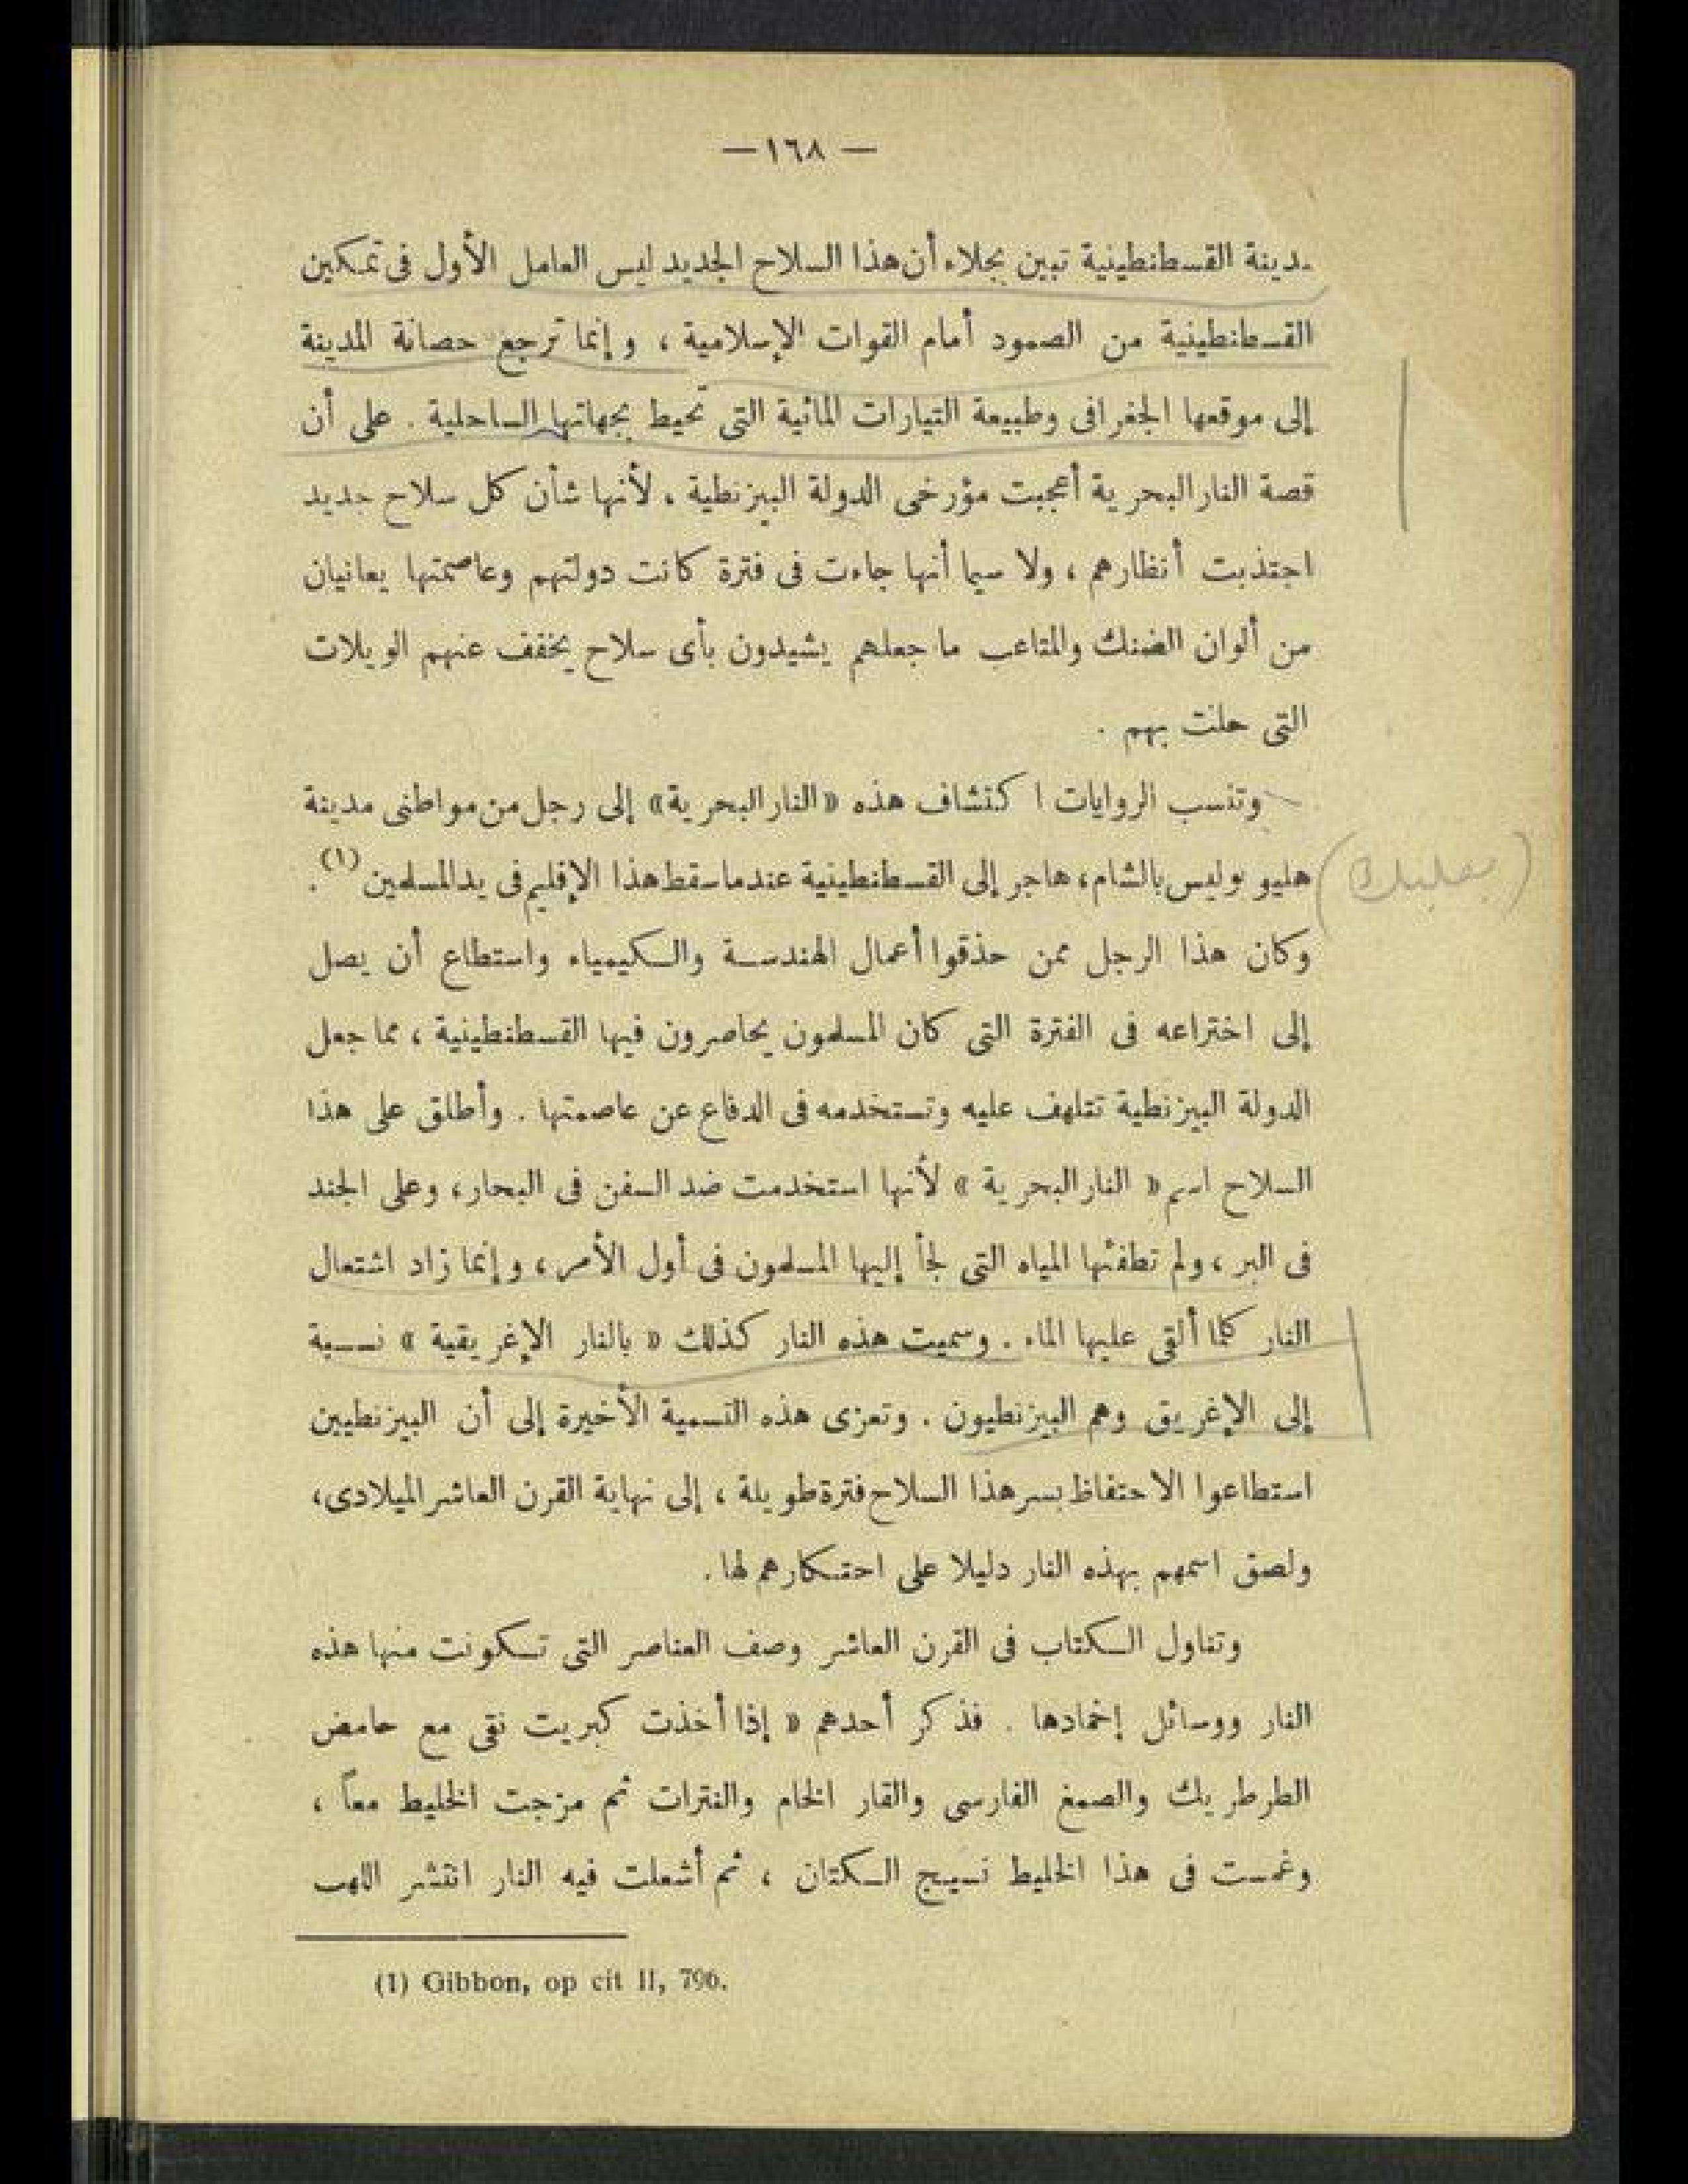 — ١٦٨ —
مدينة القسطنطينية تبين بجلاء أن هذا السلاح الجديد ليس العامل الأول فى تمكين
القسطنطينية من الصمود أمام القوات الإسلامية ، وإنما ترجع حصانة المدينة
إلى موقعها الجغرافى وطبيعة التيارات المائية التى تحيط بجهاتها الساحلية . على أن
قصة النار البحرية أعجبت مؤرخى الدولة البيزنطية ، لأنها شأن كل سلاح جديد
اجتذبت أنظارهم ، ولا سيما أنها جاءت فى فترة كانت دولتهم وعاصمتها يعانيان
من ألوان الضنك والمتاعب ما جعلهم يشيدون بأى سلاح يخفف عنهم الويلات
التى حلت بهم .
وتنسب الروايات اكتشاف هذه « النار البحرية » إلى رجل من مواطنى مدينة
هليوبوليس بالشام ، هاجر إلى القسطنطينية عندما سقط هذا الإقليم فى يد المسلمين (١) .
(بعلبك)
وكان هذا الرجل ممن حذقوا أعمال الهندسة والكيمياء واستطاع أن يصل
إلى اختراعه فى الفترة التى كان المسلمون يحاصرون فيها القسطنطينية ، مما جعل
الدولة البيزنطية تتلهف عليه وتستخدمه فى الدفاع عن عاصمتها . وأطلق على هذا
السلاح اسم « النار البحرية » لأنها استخدمت ضد السفن فى البحار ، وعلى الجند
فى البر ، ولم تطفئها المياه التى لجأ إليها المسلمون فى أول الأمر ، وإنما زاد اشتعال
النار كلما ألقى عليها الماء . وسميت هذه النار كذلك « بالنار الإغريقية » نسبة
إلى الإغريق وهم البيزنطيون . وتعزى هذه التسمية الأخيرة إلى أن البيزنطيين
استطاعوا الاحتفاظ بسر هذا السلاح فترة طويلة ، إلى نهاية القرن العاشر الميلادى ،
ولصق اسمهم بهذه النار دليلا على احتكارهم لها .
وتناول الكتاب فى القرن العاشر وصف العناصر التى تكونت منها هذه
النار ووسائل إخمادها . فذكر أحدهم « إذا أخذت كبريت نقى مع حامض
الطرطريك والصمغ الفارسى والقار الخام والنترات ثم مزجت الخليط معاً ،
وغمست فى هذا الخليط نسيج الكتان ، ثم أشعلت فيه النار انتشر اللهب
(1) Gibbon, op cit II, 796.